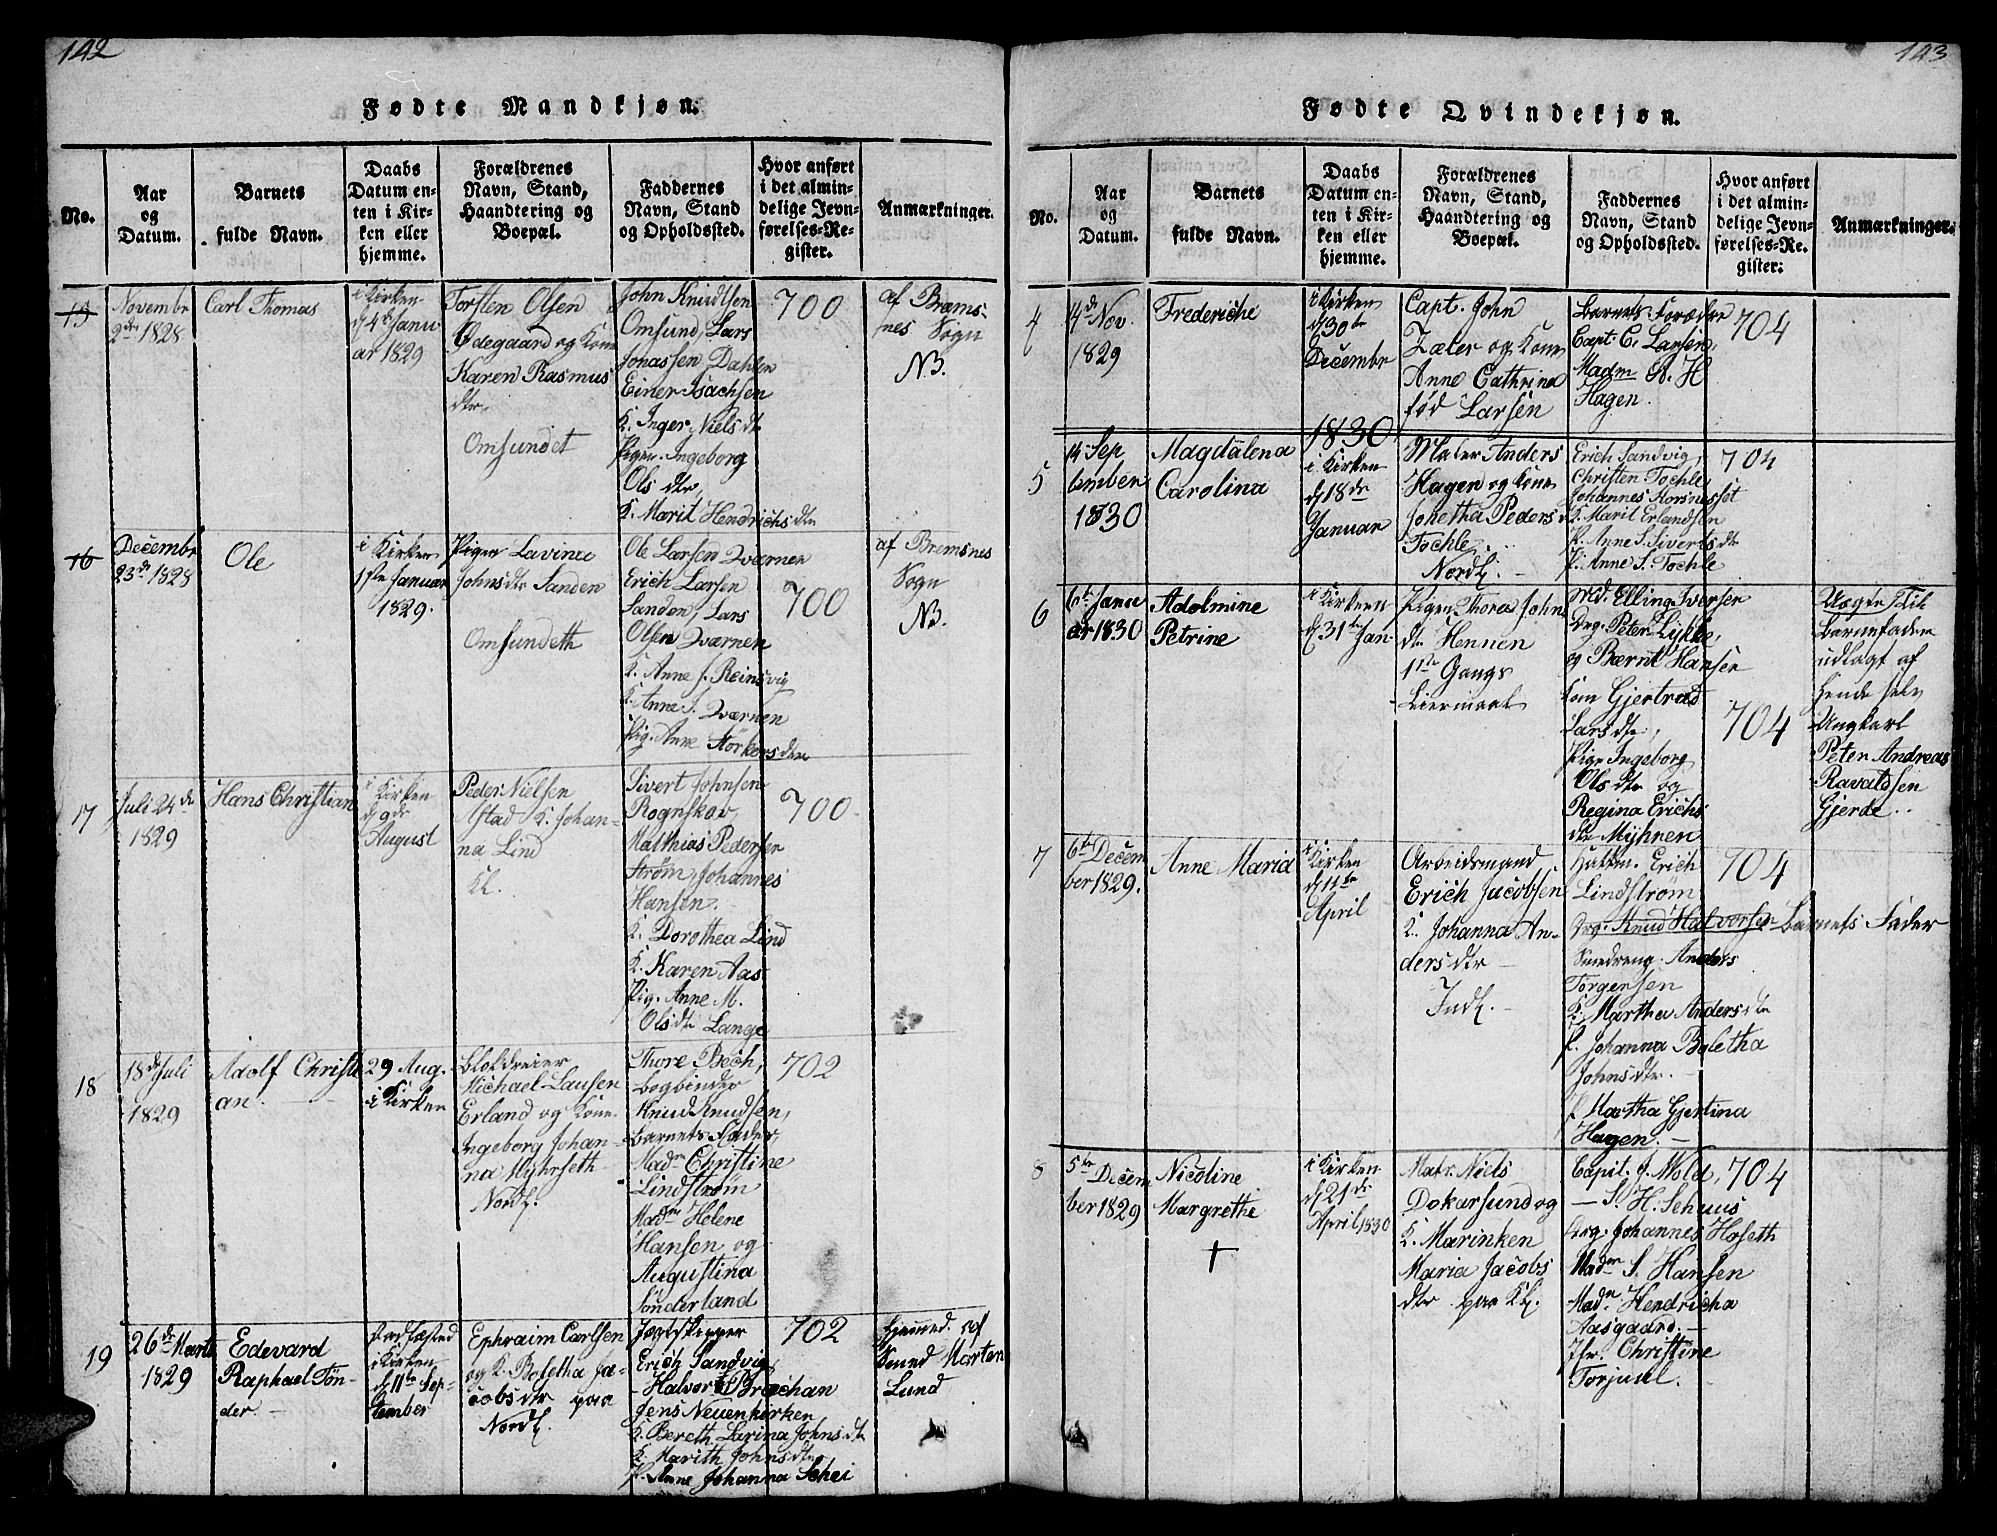 142
Fødte Mandkjøn.
No.
Aar og Datum.
Barnets fulde Navn.
Daabs Datum enten i Kirken eller hjemme.
Forældrenes Navn, Stand, Haandtering og Boepæl.
Faddernes Navn, Stand og Opholdssted.
Hvor anført i det almindelige Jevnførelses-Register.
Anmærkninger.
15
Novembr
2de 1828
Carl Thomas
i Kirken
d 4de Janu
ar 1829
Torsten Olsen
Ødegaard og Kone
Karen Rasmus
dtr.
Omsundet
John Knudtsen
Omsund, Lars
Jonassen Dahlen
Einer Isachsen
K. Inger Niels dtr
Pigen Ingeborg
Ols dtr,
K. Marit Hendrichsdtr
700
af Brems-
nes Sogn
NB.
16
Decembr
23de 1828
Ole
i
Kirken
1ste Januar
1829.
Pigen Lavina
Johnsdtr Sanden
Omsundeth
Ole Larsen Qværnen
Erich Larsen
Sanden, Lars
Olsen Qværnen
K. Anne J. Reinsvig
K. Anne J. Qværnen
Pig. Anne Størkersdtr
700
af Bremsnes
Sogn
NB.
17
Juli 24de
1829
Hans Christian
i Kirken
d 9de
August
Peder Nielsen
Astad K. Johan-
na Lind
Kl.
Sivert Johnsen
Rognskov,
Matthias Pedersen
Strøm, Johannes
Hansen.
K. Dorothea Lind
K. Karen Aas
Pig. Anne M.
Olsdtr Lange
700
18
18de Juli
1829
Adolf Christi
an.
29 Aug.
i Kirken
Blokdreier
Michael Lausen
Erland og Kone
Ingeborg Johan-
na Myhrseth
Nordl.
Thore Bech,
bogbinder
Knud Knudsen,
Barnets Fader,
Madm Christine
Lindstrøm
Madm Helene
Hansen og
Augustina
Sønderland
702
19
26de Marts
1829
Edevard
Raphael Tøn-
der.
Stadfæsted
i Kirken
d 11te Sep-
tember
Ephraim Carlsen
og K. Boletha Ja-
cobsdtr paa
Nordl.
Jagtskipper
Erich Sandvig
Halvor Brochan
Jens Neuenkirken
K. Bereth Larina Johnsdtr
K. Marith Johnsdtr
P. Anne Johanna Schei
702
Hjemmed. af
Smed Morten
Lund
143
Fødte Qvindekjøn.
No.
Aar og Datum.
Barnets fulde Navn.
Daabs Datum enten i Kirken eller hjemme.
Forældrenes Navn, Stand, Haandtering og Boepæl.
Faddernes Navn, Stand og Opholdssted.
Hvor anført i det almindelige Jevnførelses-Register.
Anmærkninger.
4
4de Nov.
1829
Frederiche
i Kirken
d 30te
Decembr
Capt. John
Zæter og Kone
Anne Cathrina
fød Larsen
Barnets Forældre
Capt. C. Larsen,
Madm A. H
Hagen.
704
1830
5
14 Sep
tember
1830
Magdalena
Carolina
i Kirken
d 18de
Januar
Maler Anders
Hagen og Kone
Johetha Pedersd
Tochle.
Nordl.
Erich Sandvig,
Christen Tochle
Johannes Korsneset
K. Marit Erlandsen
P. Anne S. Sivertsdtr
P. Anne S. Tochle
704
6
6te Janu
ar 1830
Adolmine
Petrine
i Kirken
d 31te Jan
Pigen Thora John
dtr Hennen
1ste Gangs
Leiermaal
Md. Elling Iversen
Drg. Peter Lykke,
og Bærnt Hansen
Kone Gjertrud
Larsdtr,
Pige Ingeborg
Ols dtr og
Regina Erichs
dtr Myhnen
704
Uægte Til
Barnefader
udlagt af
hende selv
Ungkarl
Peter Andreas
Ravaldsen
Gjerde.
7
6te Decem
ber 1829.
Anne Maria
i
Kirken
d 11te
April
Arbeidsmand
Erich Jacobsen
K. Johanna An-
dersdtr
Indl.
Hattm. Erich
Lindstrøm
Drg. Knud Halvorsen Barnets Fader
Smedreng Anders
Torgersen
K. Martha Andersdtr
P. Johanna Boletha
Johnsdtr.
P. Martha Gjertina
Hagen.
704
8
5te Decem
ber 1829
Nicoline
Margrethe
+
i Kirken
d 21de
April 1830
Matr. Niels
Dokarsund og
K. Marinken
Maria Jacobs
dtr paa Kl.
Capit. J. Mold,
— S. H. Schuus
Drg. Johannes Hoseth
Madm S. Hansen
Madm Hendricha
Aasgaard.
Jfr. Christine
Torjusd.
704